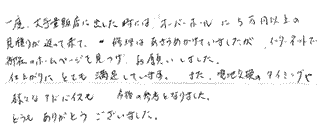 一度、大手量販店に出した時には オーバーホールに 5万円以上の
見積りが返って来て、修理はあきらめかけていましたが、インターネットで
御社のホームページを見つけ、お願いしました。
仕上がりに とても 満足しています。 また、電池交換のタイミングや
様々なアドバイスも 今後の参考となりました。
どうも ありがとう ございました。